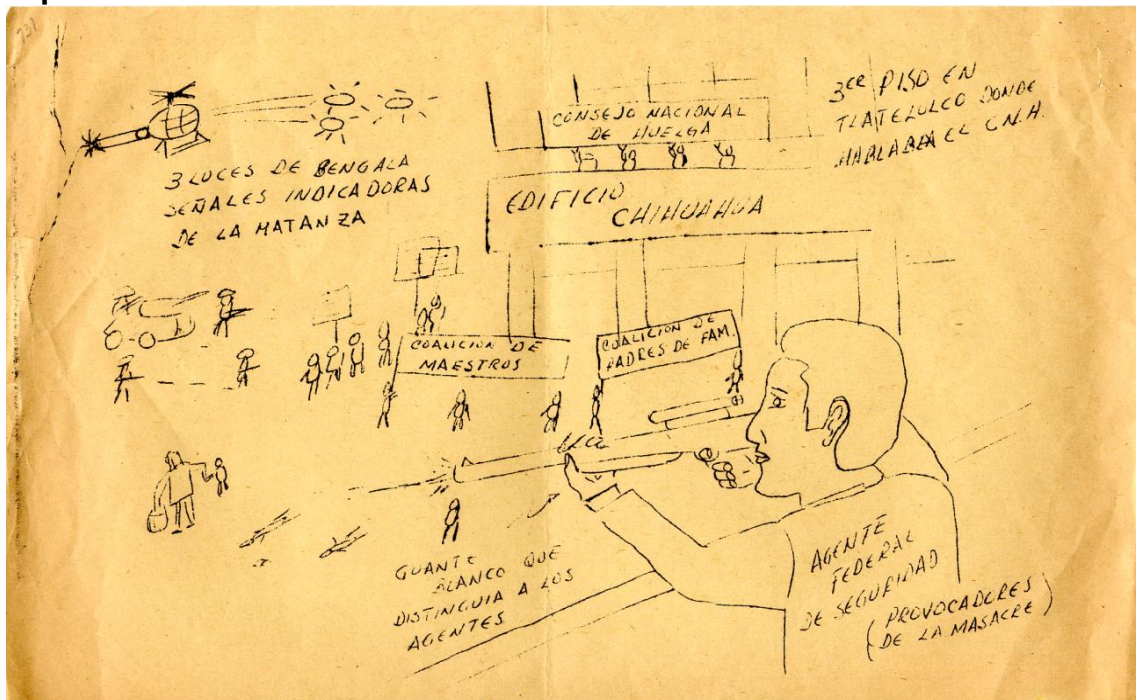 737
3 LUCES DE BENGALA
SEÑALES INDICADORAS
DE LA MATANZA
CONSEJO NACIONAL
DE HUELGA
3ER PISO EN
TLATELULCO DONDE
HABLABA EL C.N.H.
EDIFICIO
CHIHUAHUA
COALICION DE
MAESTROS
COALICION DE
PADRES DE FAM.
GUANTE
BLANCO QUE
DISTINGUIA A LOS
AGENTES
AGENTE
FEDERAL
DE SEGURIDAD
(PROVOCADORES
DE LA MASACRE)